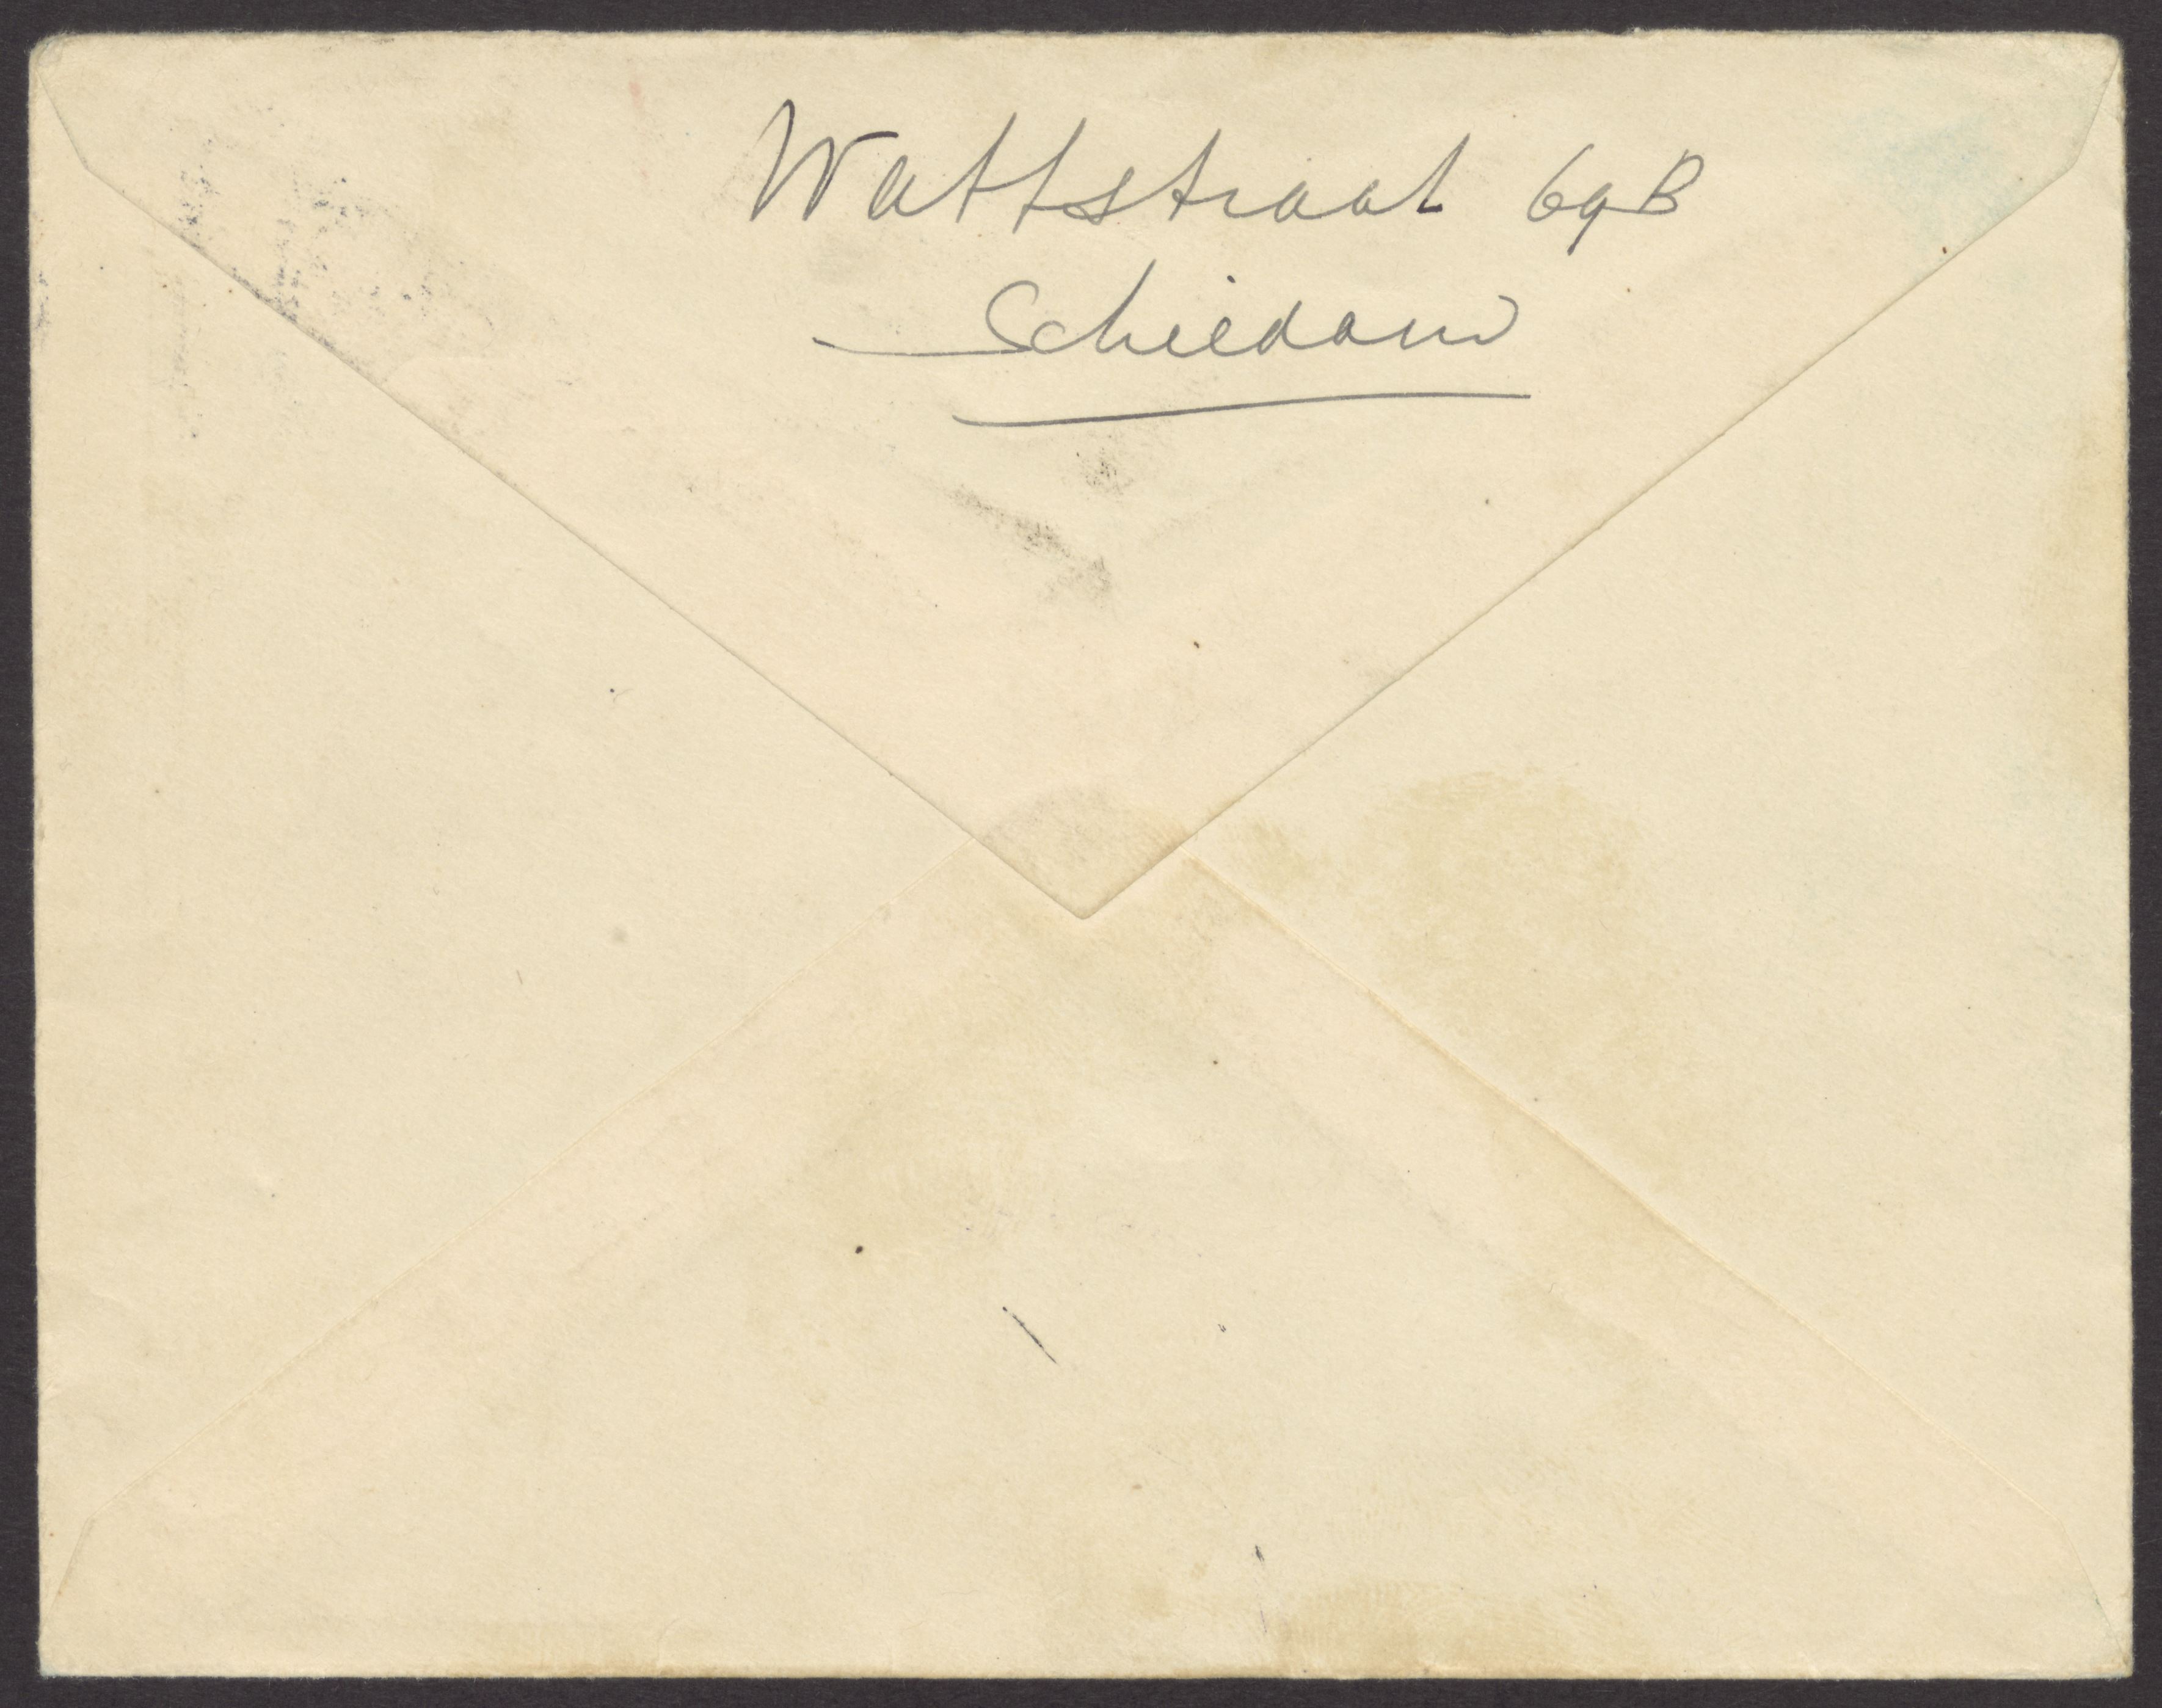 Wattstraat 69B
Schiedam